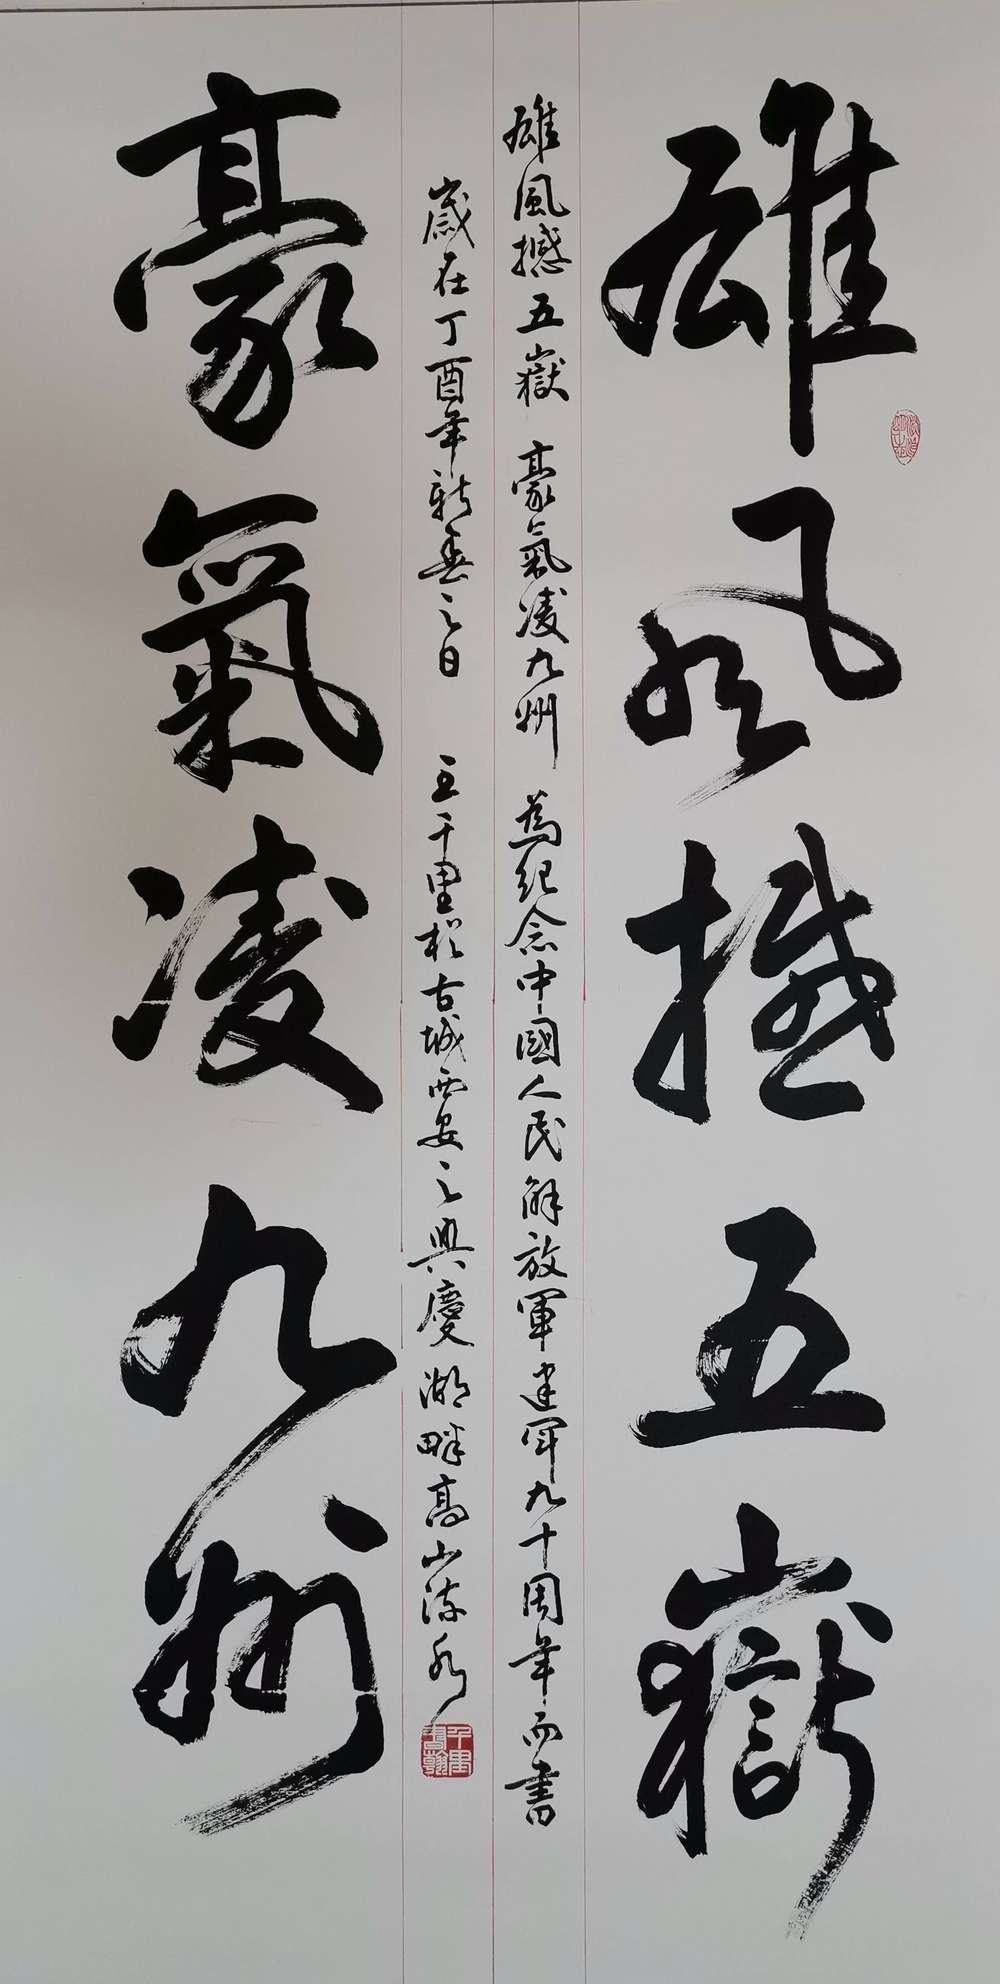 雄風撼五嶽
雄風撼五嶽 豪氣凌九州 為紀念中國人民解放軍建军九十周年而書
歲在丁酉年新春之日 王千里於古城西安之興慶湖畔高山流水
豪氣凌九州
千里書翰